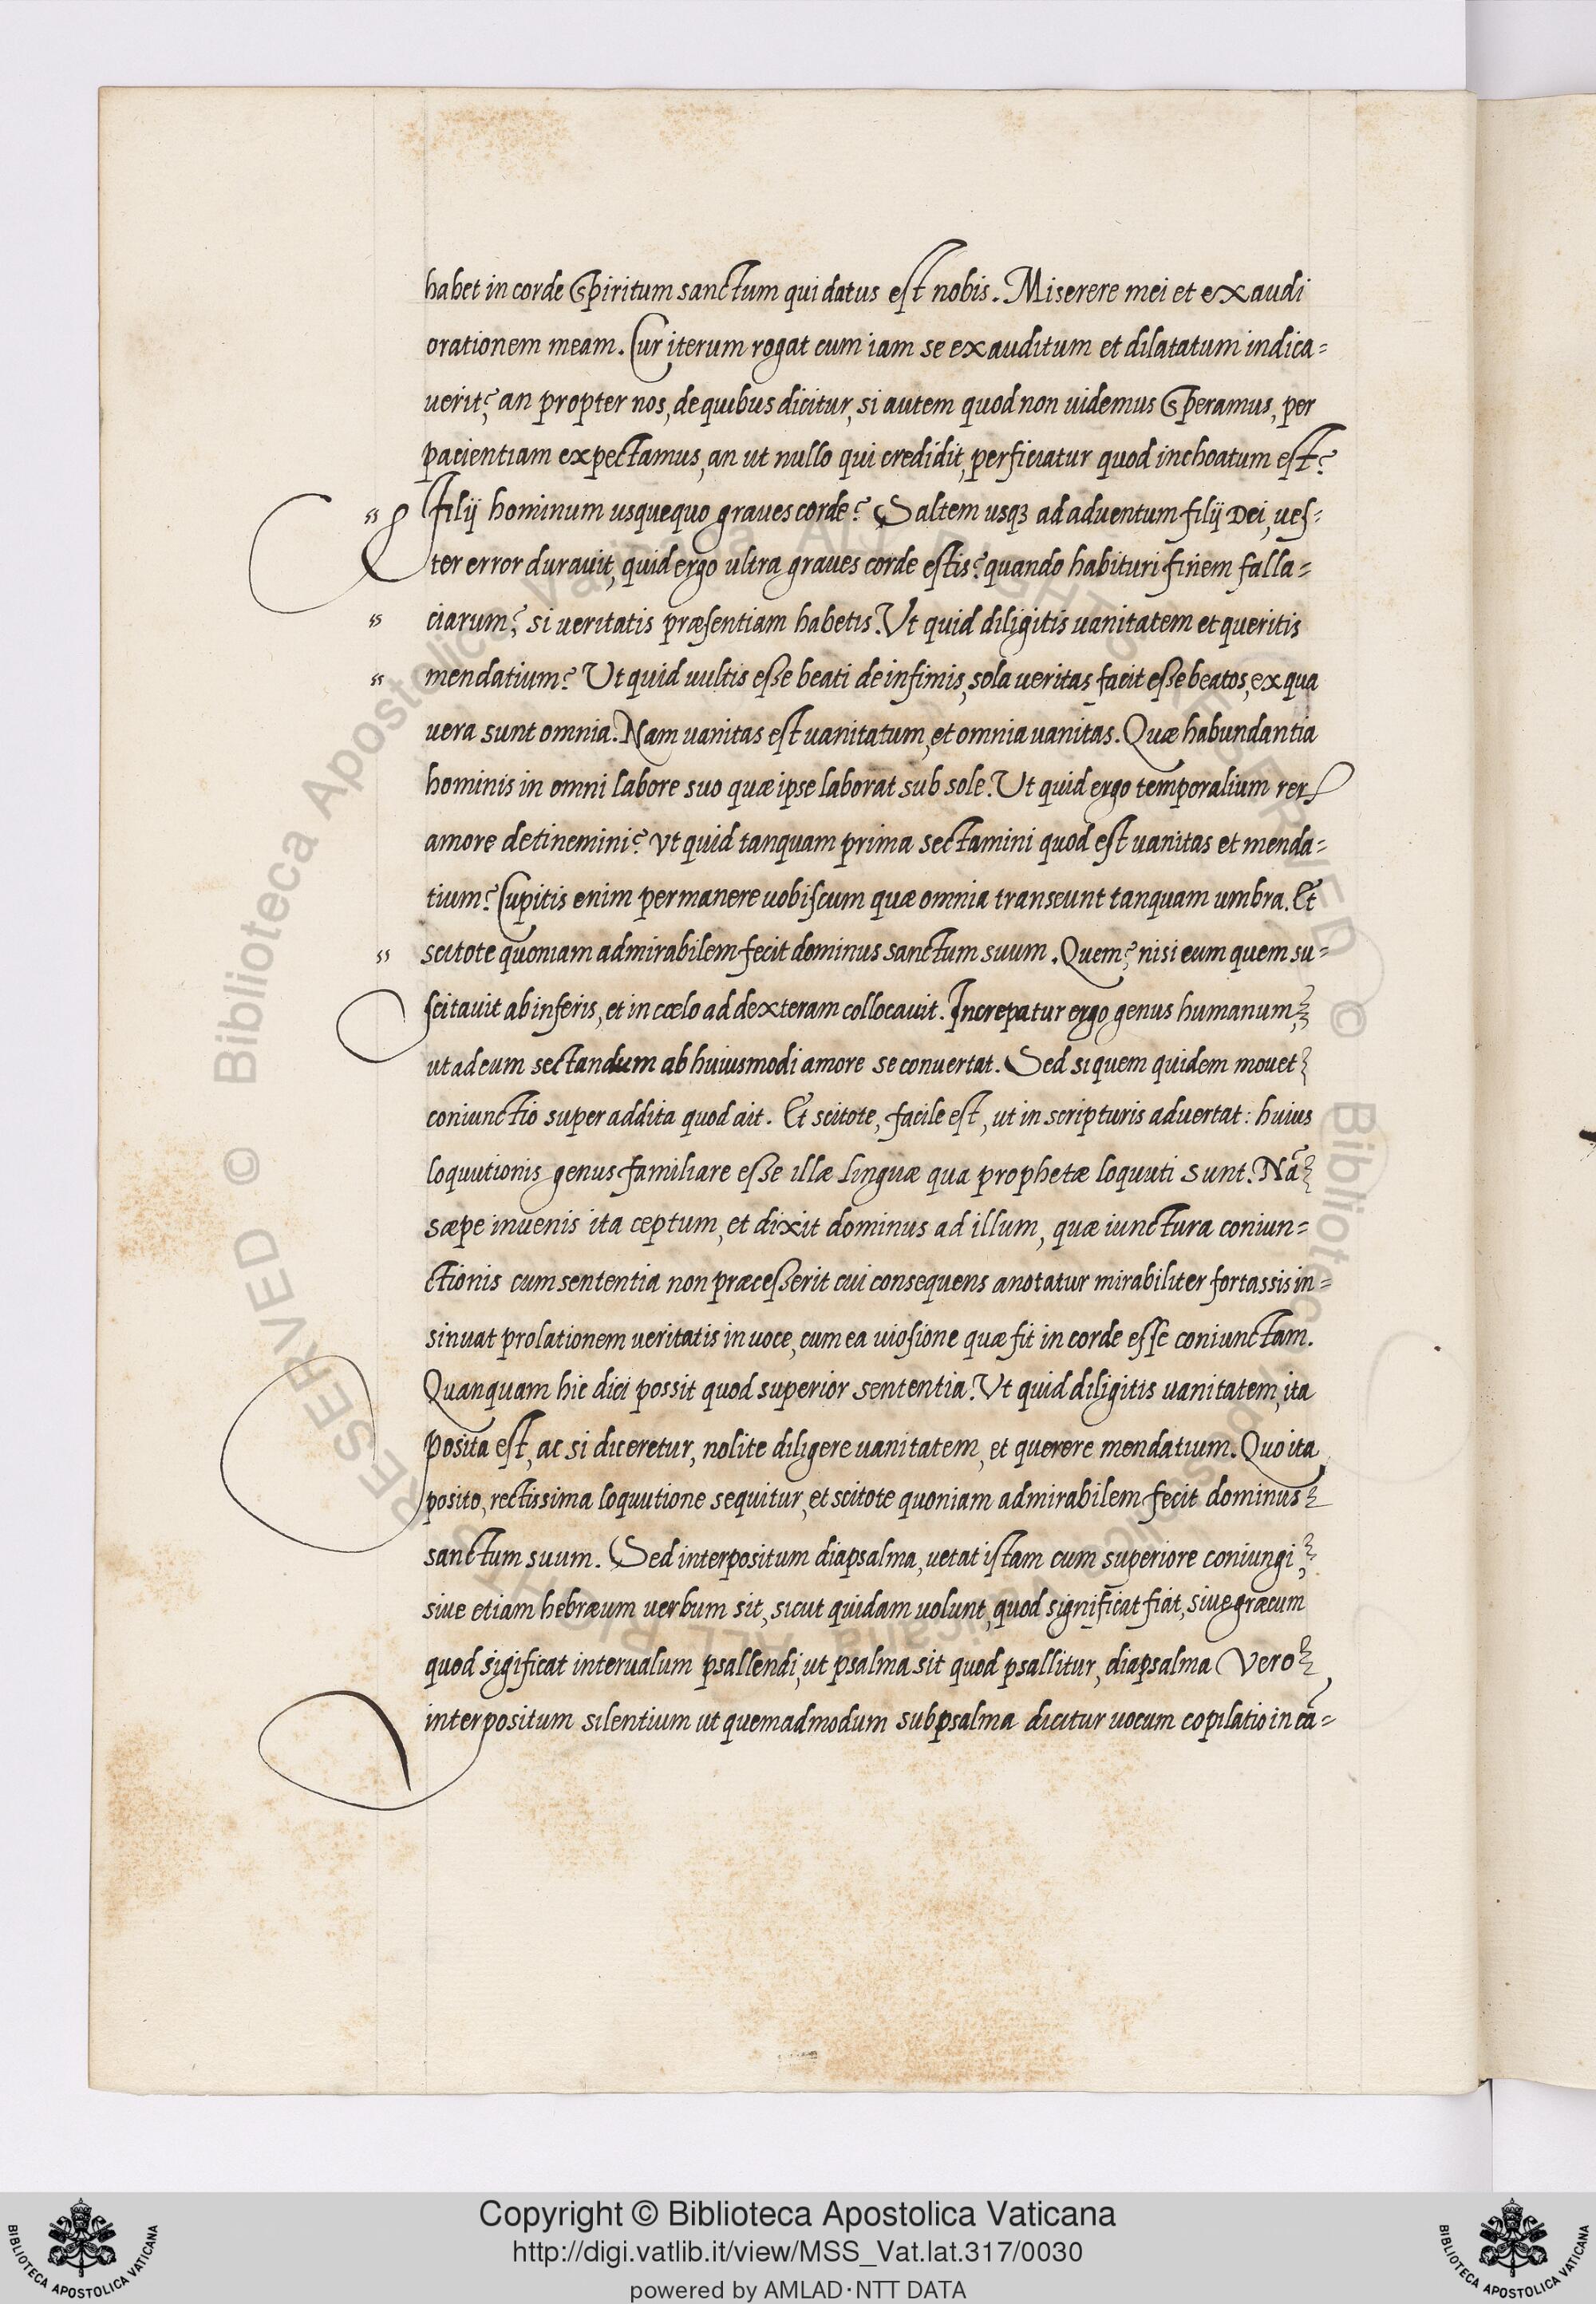 habet in corde Spiritum sanctum qui datus est nobis. Miserere mei et exaudi
orationem meam. Cur iterum rogat cum iam se exauditum et dilatatum indica=
uerit? an propter nos, de quibus dicitur, si autem quod non uidemus Speramus, per
pacientiam expectamus, an ut nullo qui credidit, perficiatur quod inchoatum est?
" Filij hominum usquequo graues corde? Saltem usqꝫ ad aduentum filij Dei, ues=
ter error durauit, quid ergo ultra graues corde estis? quando habituri finem falla=
" ciarum? si ueritatis præsentiam habetis. Vt quid diligitis uanitatem et queritis
" mendatium? Ut quid uultis esse beati de infimis, sola ueritas facit esse beatos, ex qua
uera sunt omnia. Nam uanitas est uanitatum, et omnia uanitas. Quæ habundantia
hominis in omni labore suo quæ ipse laborat sub sole. Ut quid ergo temporalium rerꝭ
amore detinemini? vt quid tanquam prima sectamini quod est uanitas et menda=
tium? Cupitis enim permanere uobiscum quæ omnia transeunt tanquam umbra. Et
" scitote quoniam admirabilem fecit dominus sanctum suum. Quem? nisi eum quem su=
scitauit ab inferis, et in cœlo ad dexteram collocauit. Increpatur ergo genus humanum,
ut ad eum sectandum ab huiusmodi amore se conuertat. Sed si quem quidem mouet
coniunctio super addita quod ait. Et scitote, facile est, ut in scripturis aduertat: huius
loquutionis genus familiare esse illæ linguæ qua prophetæ loquuti sunt. Nã
sæpe inuenis ita ceptum, et dixit dominus ad illum, quæ iunctura coniun=
ctionis cum sententia non præcesserit cui consequens anotatur mirabiliter fortassis in=
sinuat prolationem ueritatis in uoce, cum ea uiosione quæ fit in corde esse coniunctam.
Quanquam hic dici possit quod superior sententia. Vt quid diligitis uanitatem, ita
posita est, ac si diceretur, nolite diligere uanitatem, et querere mendatium. Quo ita
posito, rectissima loquutione sequitur, et scitote quoniam admirabilem fecit dominus
sanctum suum. Sed interpositum diapsalma, uetat istam cum superiore coniungi,
siue etiam hebræum uerbum sit, sicut quidam uolunt, quod significat fiat, siue græcum
quod sigificat interualum psallendi, ut psalma sit quod psallitur, diapsalma Vero
interpositum silentium ut quemadmodum subpsalma dicitur uocum copilatio in cã=
Copyright © Biblioteca Apostolica Vaticana
http://digi.vatlib.it/view/MSS_Vat.lat.317/0030
powered by AMLAD·NTT DATA